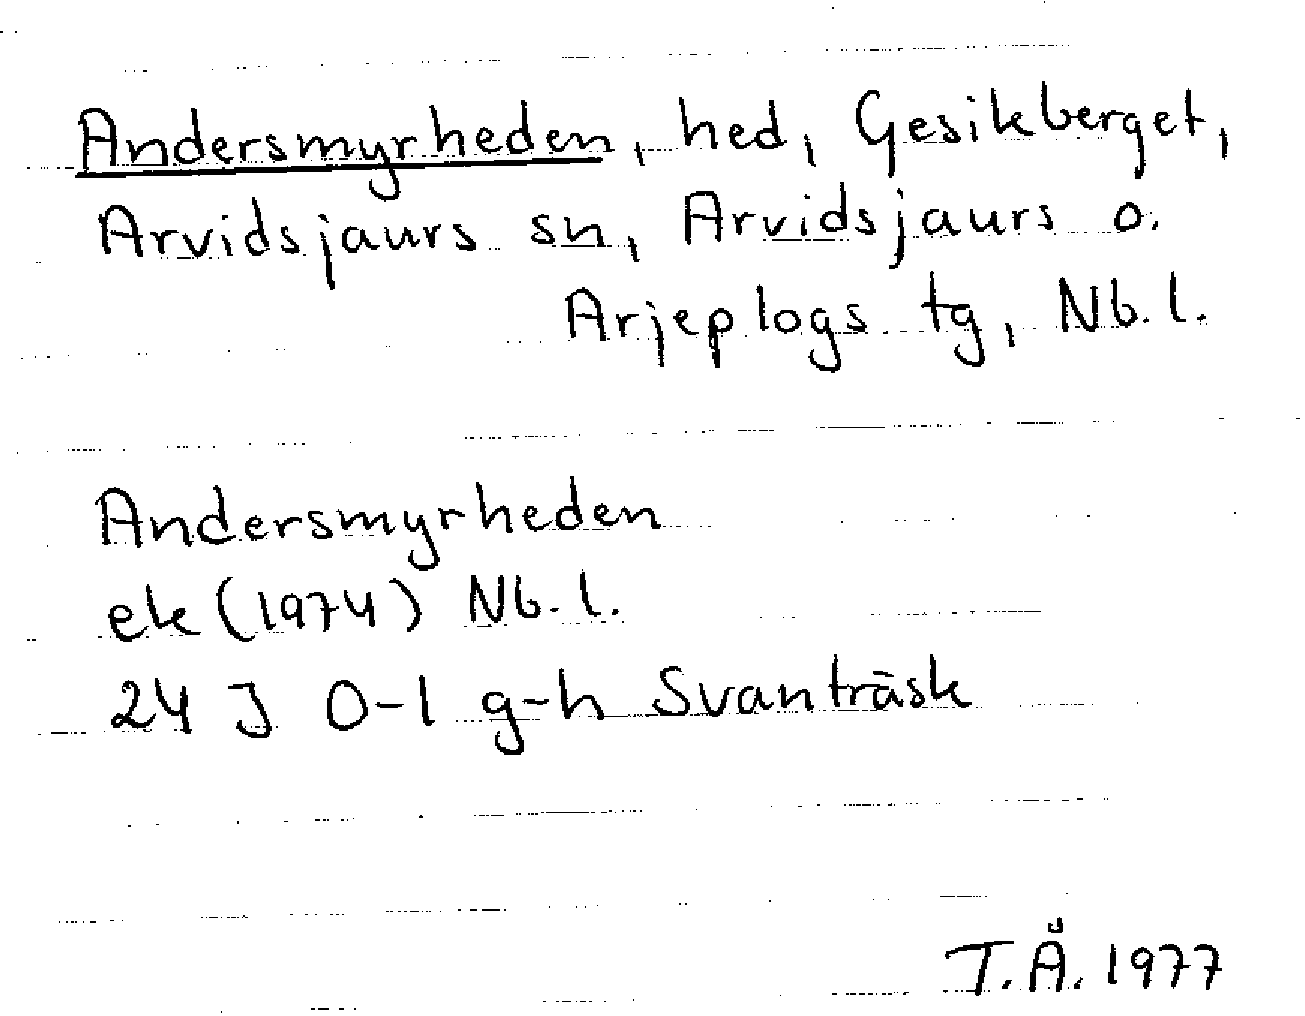 Andersmyrheden, hed, Gesikberget,
Arvidsjaurs sn, Arvidsjaurs o.
Arjeplogs tg, Nb.l.
Andersmyrheden
ek (1974) Nb.l.
24 J 0-1 g-h Svanträsk
T.Å. 1977